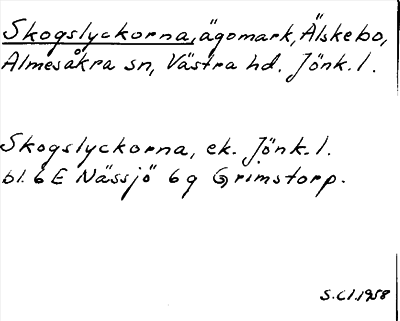 Skogslyckorna, ägomark, Älskebo,
Almesåkra sn, Västra hd. Jönk. l.
Skogslyckorna, ek. Jönk. l.
bl. 6 E Nässjö 6 g Grimstorp.
S.Cl. 1958